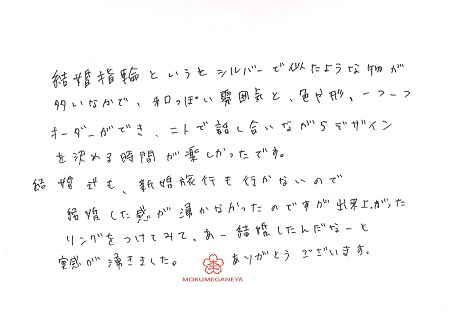 結婚指輪というとシルバーで似たような物が
多いなかで、和っぽい雰囲気と、色や形、一つ一つ
オーダーができ、二人で話し合いながらデザイン
を決める時間が楽しかったです。
結婚式も、新婚旅行も行かないので
結婚した感が湧かなかったのですが出来上がった
リングをつけてみて、あー結婚したんだなーと
実感が湧きました。 ありがとうございます。
MOKUMEGANEYA